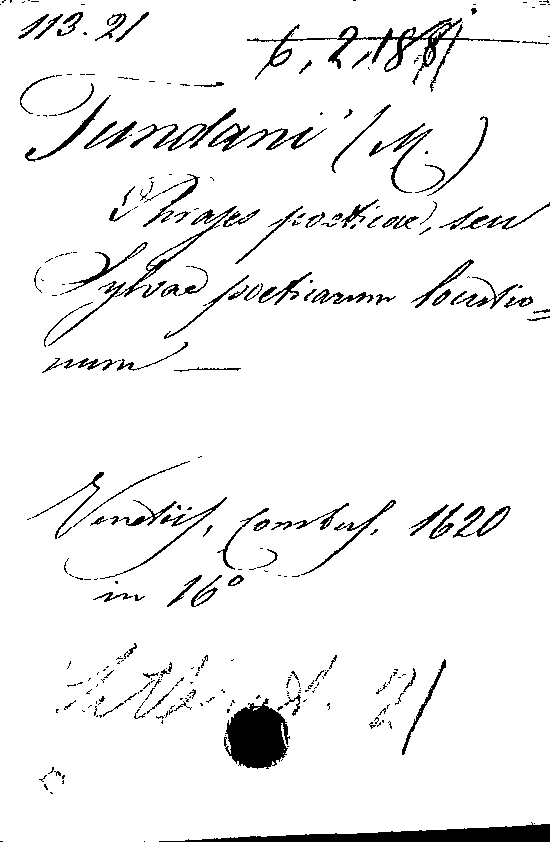 113.21
6, 2, 18
Fundani (M.)
Phrases poeticae, seu
Sylvae poeticarum locutio=
num —
Venetiis, Combus. 1620
in 16º